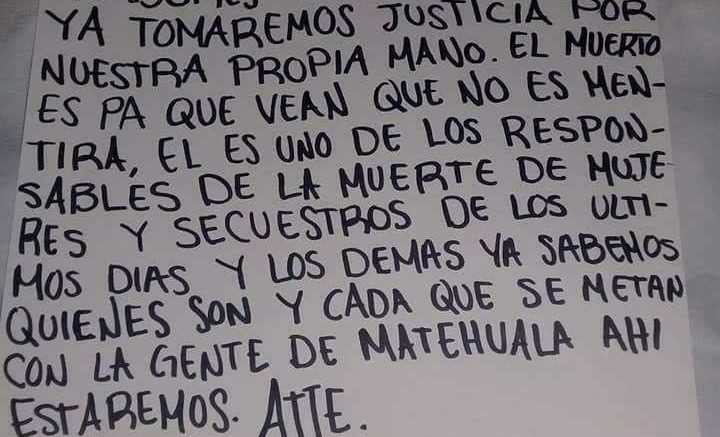 YA TOMAREMOS JUSTICIA POR
NUESTRA PROPIA MANO. EL MUERTO
ES PA QUE VEAN QUE NO ES MEN-
TIRA, EL ES UNO DE LOS RESPON-
SABLES DE LA MUERTE DE MUJE
RES Y SECUESTROS DE LOS ULTI-
MOS DIAS Y LOS DEMAS YA SABEMOS
QUIENES SON Y CADA QUE SE METAN
CON LA GENTE DE MATEHUALA AHI
ESTAREMOS. ATTE.